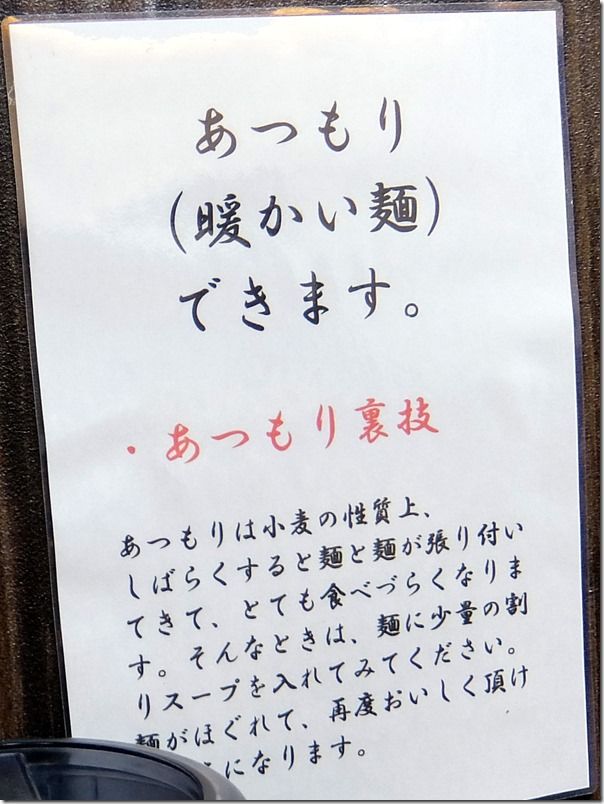 あつもり
（暖かい麺）
できます。
・あつもり裏技
あつもりは小麦の性質上、
しばらくすると麺と麺が張り付い
てきて、とても食べづらくなりま
す。そんなときは、麺に少量の割
りスープを入れてみてください。
麺がほぐれて、再度おいしく頂け
になります。